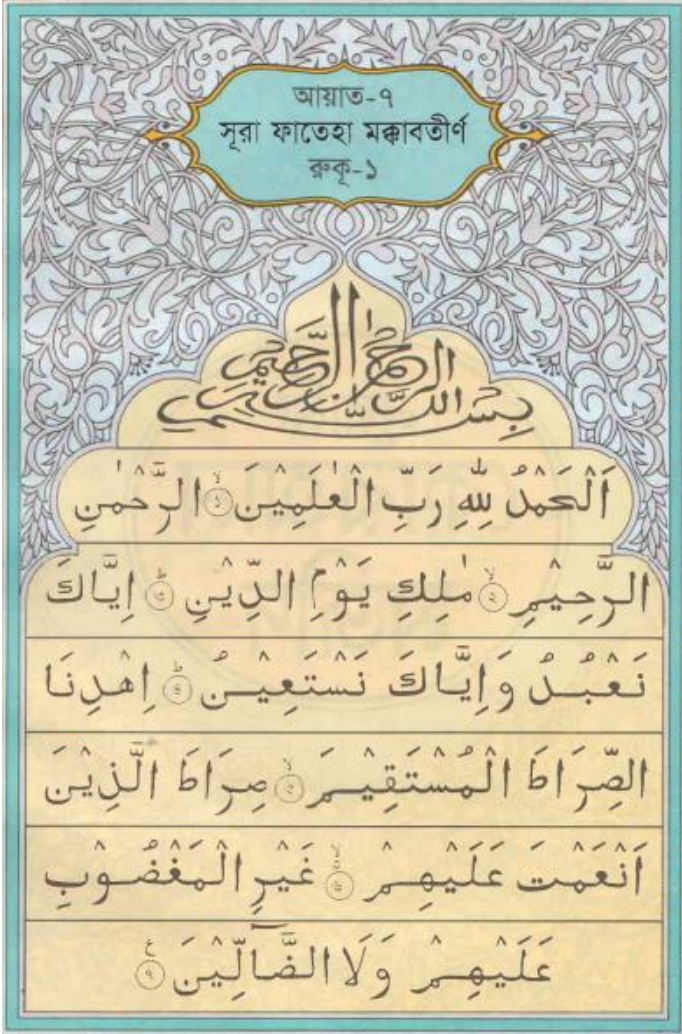 আয়াত-৭
সূরা ফাতেহা মক্কাবতীর্ণ
রুকূ-১
بِسْمِ اللهِ الرَّحْمٰنِ الرَّحِيْمِ
اَلْحَمْدُ لِلّٰهِ رَبِّ الْعٰلَمِيْنَ ۙ﴿১﴾ الرَّحْمٰنِ
الرَّحِيْمِ ۙ﴿২﴾ مٰلِكِ يَوْمِ الدِّيْنِ ؕ﴿৩﴾ اِيَّاكَ
نَعْبُدُ وَاِيَّاكَ نَسْتَعِيْنُ ؕ﴿৪﴾ اِهْدِنَا
الصِّرَاطَ الْمُسْتَقِيْمَ ۙ﴿৫﴾ صِرَاطَ الَّذِيْنَ
اَنْعَمْتَ عَلَيْهِمْ ۙ﴿৬﴾ غَيْرِ الْمَغْضُوْبِ
عَلَيْهِمْ وَلَا الضَّآلِّيْنَ ﴿৭﴾ ع